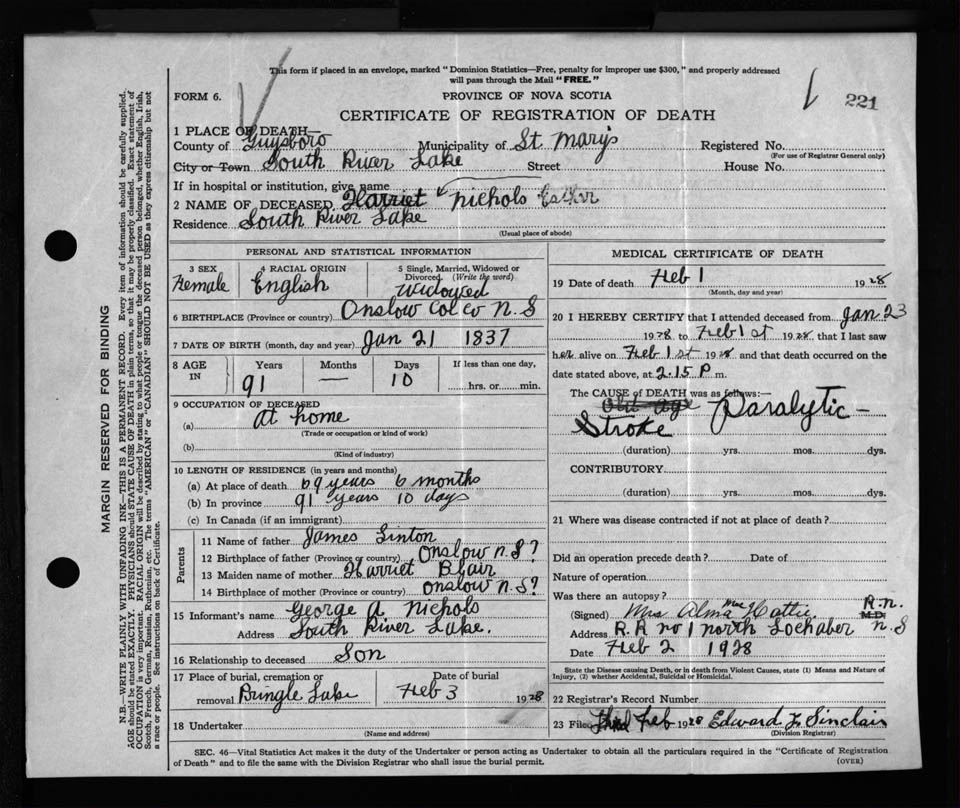 This form if placed in an envelope, marked "Dominion Statistics—Free, penalty for improper use $300," and properly addressed
will pass through the Mail "FREE."
FORM 6.
PROVINCE OF NOVA SCOTIA
221
CERTIFICATE OF REGISTRATION OF DEATH
1 PLACE OF DEATH—
County of Guysboro Municipality of St Mary's Registered No.
(For use of Registrar General only)
City or Town South River Lake Street House No.
If in hospital or institution, give name
2 NAME OF DECEASED Harriet Nichols Esther
Residence South River Lake
(Usual place of abode)
PERSONAL AND STATISTICAL INFORMATION
3 SEX 4 RACIAL ORIGIN 5 Single, Married, Widowed or
Divorced (Write the word)
Female English Widowed
6 BIRTHPLACE (Province or country) Onslow Col Co N.S
7 DATE OF BIRTH (month, day and year) Jan 21 1837
8 AGE Years Months Days If less than one day,
IN 91 — 10 hrs. or min.
9 OCCUPATION OF DECEASED
(a) At home
(Trade or occupation or kind of work)
(b)
(Kind of industry)
10 LENGTH OF RESIDENCE (in years and months)
(a) At place of death 69 years 6 months
(b) In province 91 years 10 days
(c) In Canada (if an immigrant)
Parents
11 Name of father James Linton
12 Birthplace of father (Province or country) Onslow N.S?
13 Maiden name of mother Harriet Blair
14 Birthplace of mother (Province or country) Onslow N.S?
15 Informant's name George A Nichols
Address South River Lake.
16 Relationship to deceased Son
17 Place of burial, cremation or Date of burial
removal Pringle Lake Feb 3 1928
18 Undertaker
(Name and address)
MEDICAL CERTIFICATE OF DEATH
19 Date of death Feb 1 1928
(Month, day and year)
20 I HEREBY CERTIFY that I attended deceased from Jan 23
1928 to Feb 1st 1928, that I last saw
her alive on Feb 1st 1928 and that death occurred on
date stated above, at 2.15 P m.
The CAUSE of DEATH was as follows:—
Old age Paralytic –
Stroke
(duration) yrs. mos. dys.
CONTRIBUTORY
(duration) yrs. mos. dys.
21 Where was disease contracted if not at place of death?
Did an operation precede death? Date of
Nature of operation
Was there an autopsy?
(Signed) Mrs Alma Mac Hattie R.N. M.D.
Address R.R no 1 north Lochaber N.S
Date Feb 2 1928
State the Disease causing Death, or in death from Violent Causes, state (1) Means and Nature of
Injury, (2) whether Accidental, Suicidal or Homicidal.
22 Registrar's Record Number
23 Filed Feb 1928 Edward J. Sinclair
(Division Registrar)
SEC. 46—Vital Statistics Act makes it the duty of the Undertaker or person acting as Undertaker to obtain all the particulars required in the "Certificate of Registration
of Death" and to file the same with the Division Registrar who shall issue the burial permit.
(OVER)
MARGIN RESERVED FOR BINDING
N.B.—WRITE PLAINLY WITH UNFADING INK—THIS IS A PERMANENT RECORD. Every item of information should be carefully supplied.
AGE should be stated EXACTLY. PHYSICIANS should STATE CAUSE OF DEATH in plain terms, so that it may be properly classified. Exact statement of
OCCUPATION is very important. RACIAL ORIGIN will be described by stating to what people or tongue the deceased person belonged, whether English, Irish,
Scotch, French, German, Russian, Ruthenian, etc. The terms "AMERICAN" or "CANADIAN" SHOULD NOT BE USED as they express citizenship but not
a race or people. See instructions on back of Certificate.